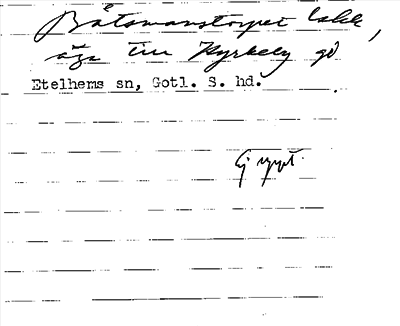 Båtsmanstorpet
äga till Kyrkeby gd
Etelhems sn, Gotl. S. hd.
Ej uppt.